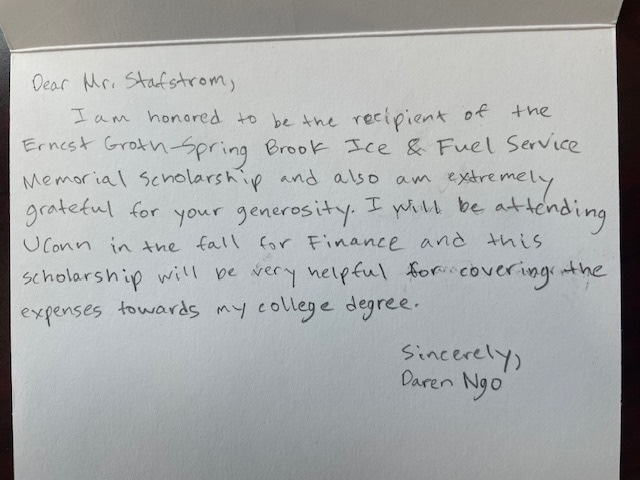 Dear Mr. Stafstrom,
I am honored to be the recipient of the
Ernest Groth-Spring Brook Ice & Fuel Service
Memorial Scholarship and also am extremely
grateful for your generosity. I will be attending
UConn in the fall for Finance and this
scholarship will be very helpful for covering the
expenses towards my college degree.
Sincerely,
Daren Ngo